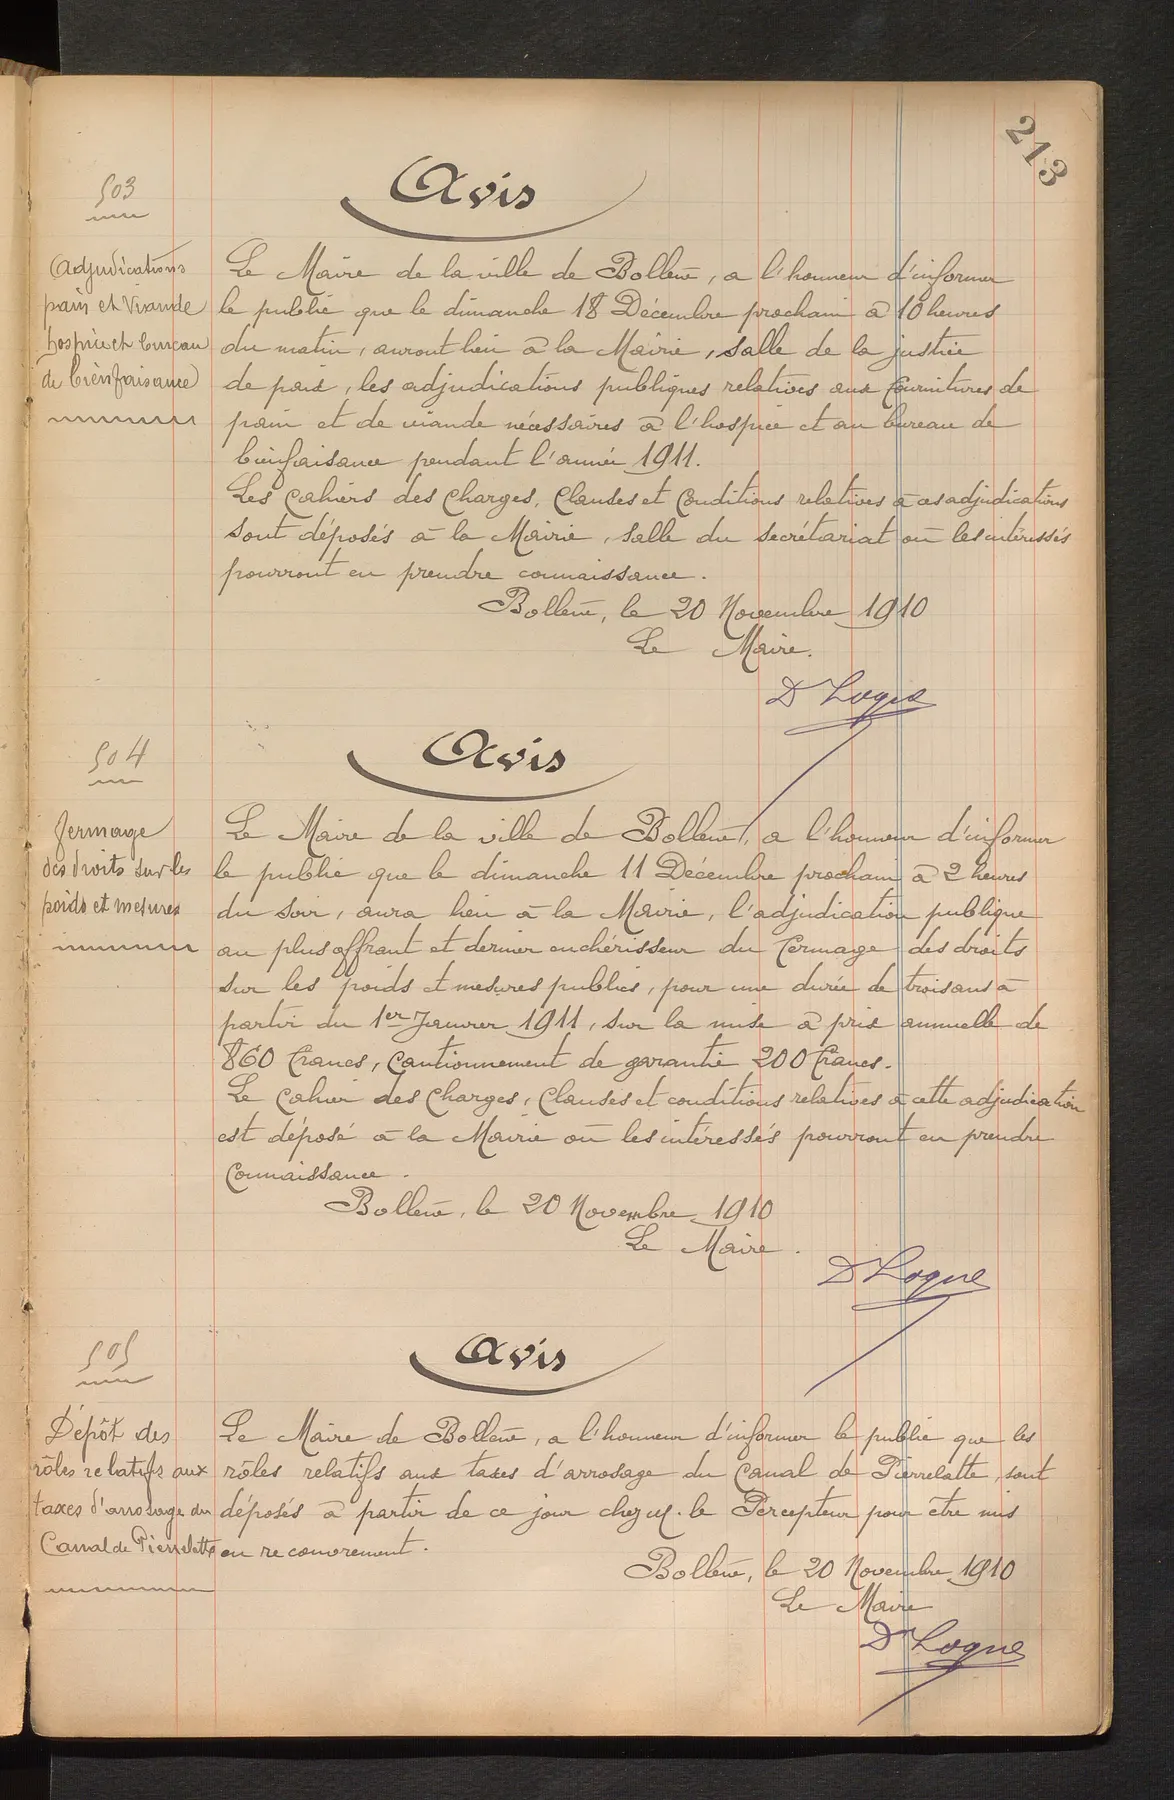 213
503
Avis
Adjudications
pain et Viande
hospice et bureau
de bienfaisance
Le Maire de la ville de Bollène, a l'honneur d'informer
le public que le dimanche 18 Décembre prochain à 10 heures
du matin, auront lieu à la Mairie, salle de la justice
de paix, les adjudications publiques relatives aux fournitures de
pain et de viande nécessaires à l'hospice et au bureau de
bienfaisance pendant l'année 1911.
Les Cahiers des Charges, Clauses et Conditions relatives à ces adjudications
sont déposés à la Mairie, salle du secrétariat où les intéressés
pourront en prendre connaissance.
Bollène, le 20 Novembre 1910
Le Maire.
Dr Logne
504
Avis
fermage
des droits sur les
poids et mesures
Le Maire de la ville de Bollène, a l'honneur d'informer
le public que le dimanche 11 Décembre prochain à 2 heures
du soir, aura lieu à la Mairie, l'adjudication publique
au plus offrant et dernier enchérisseur du fermage des droits
sur les poids et mesures publics, pour une durée de trois ans à
partir du 1er Janvier 1911, sur la mise à prix annuelle de
860 francs, Cautionnement de garantie 200 francs.
Le Cahier des Charges, Clauses et conditions relatives à cette adjudication
est déposé à la Mairie où les intéressés pourront en prendre
Connaissance.
Bollène, le 20 Novembre 1910
Le Maire.
Dr Logne
505
Avis
Dépôt des
rôles relatifs aux
taxes d'arrosage du
Canal de Pierrelatte
Le Maire de Bollène, a l'honneur d'informer le public que les
rôles relatifs aux taxes d'arrosage du Canal de Pierrelatte, sont
déposés à partir de ce jour chez M. le Percepteur pour être mis
en recouvrement.
Bollène, le 20 Novembre 1910
Le Maire
Dr Logne